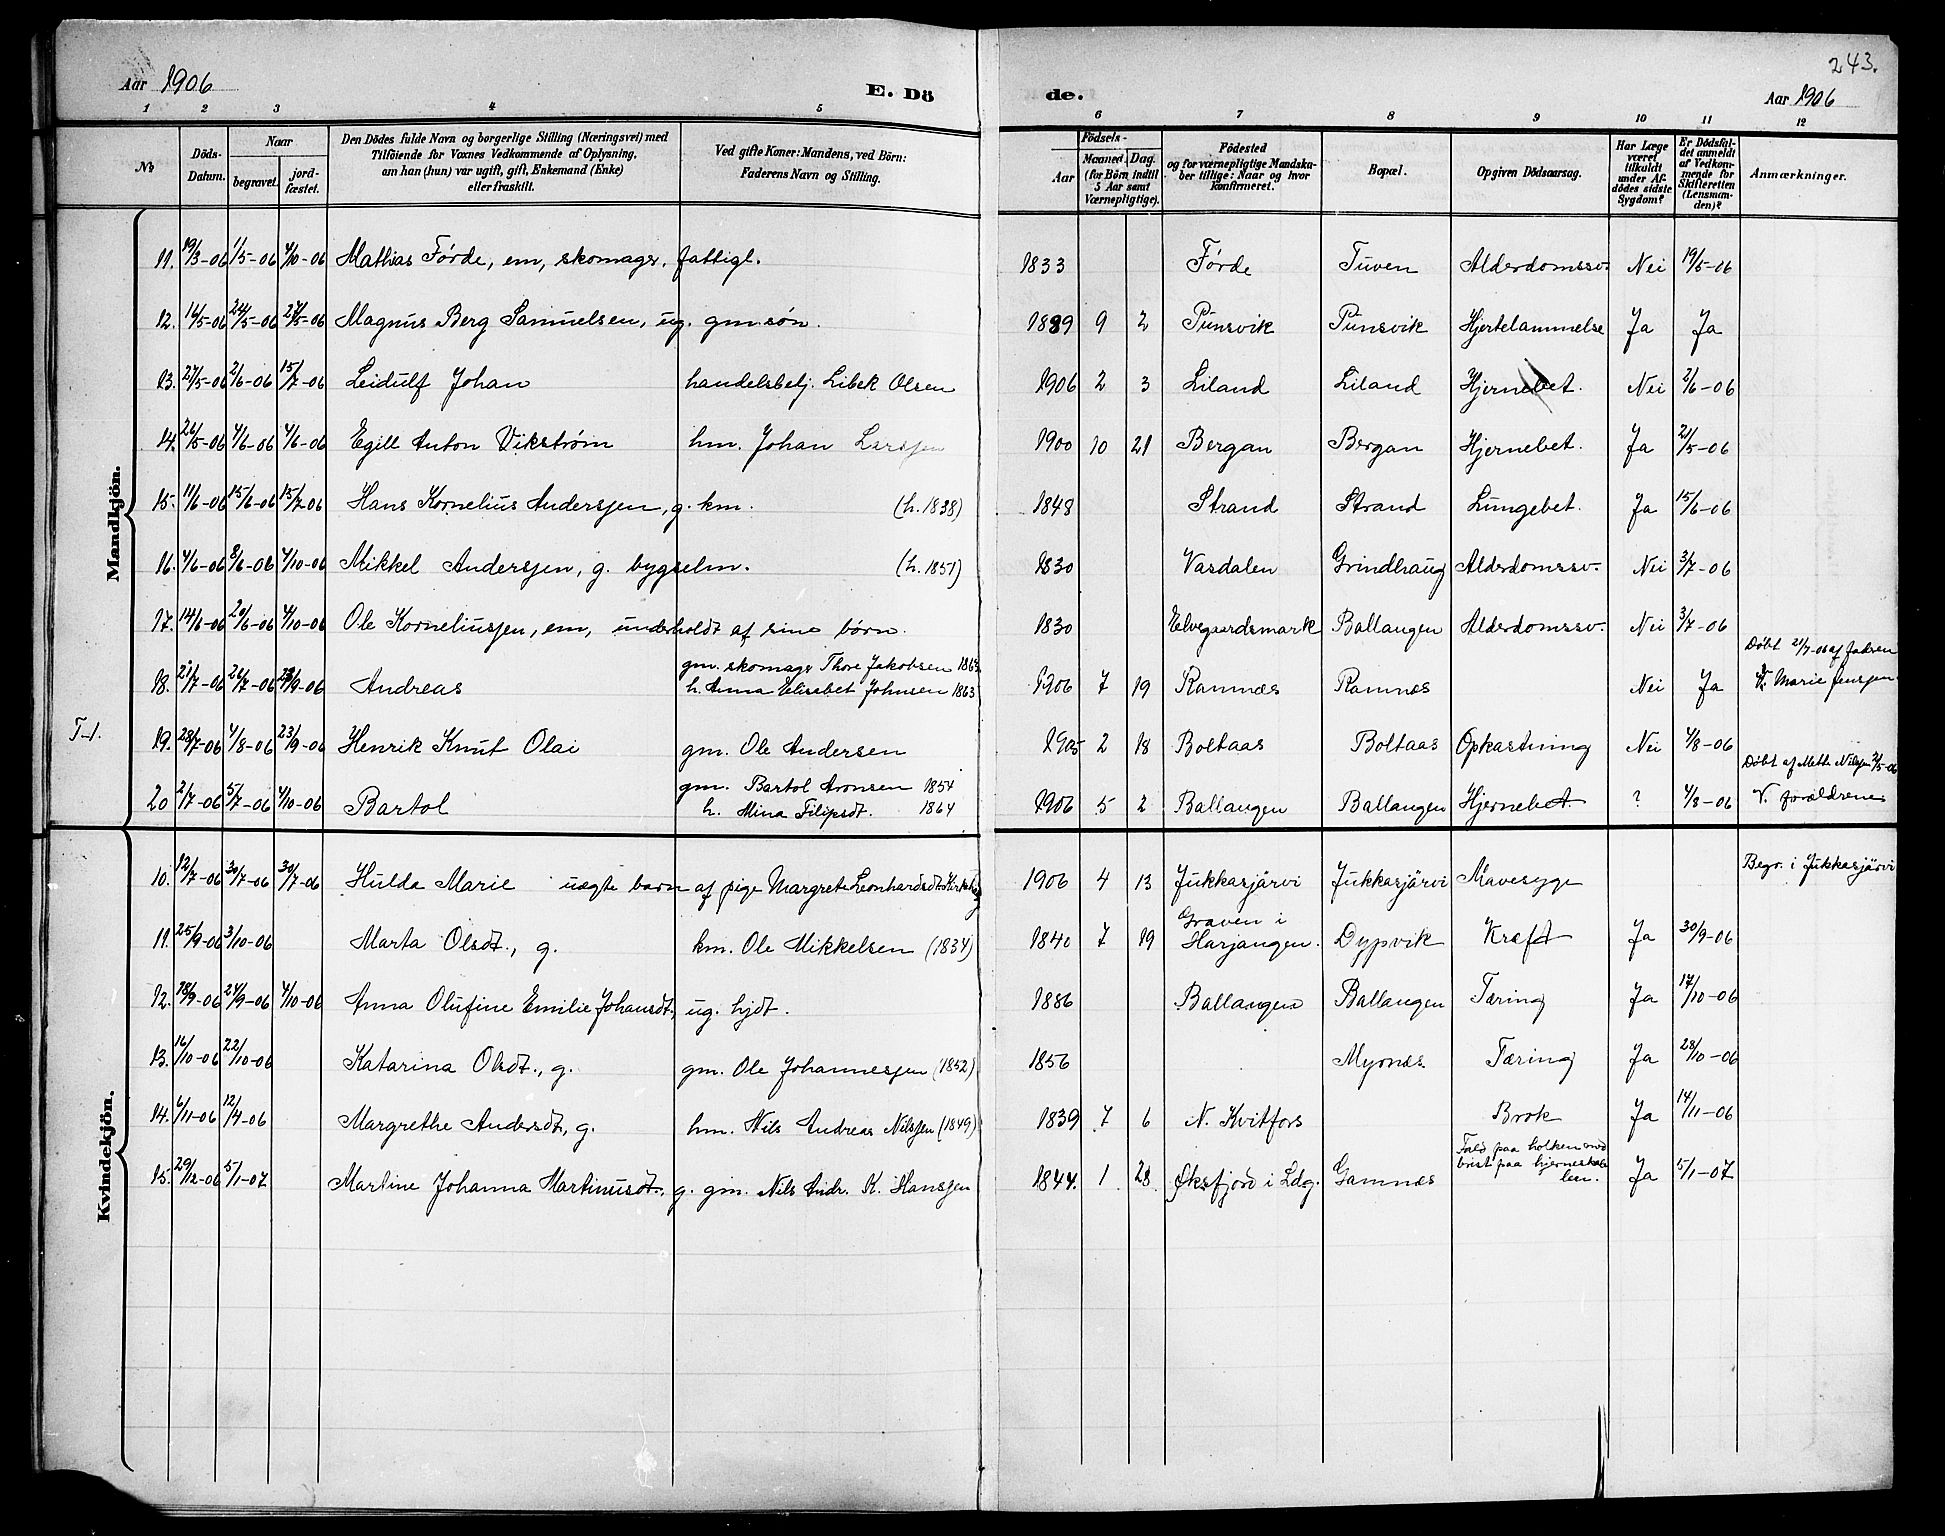 243.
Aar 1906 E. Dö de. Aar 1906
1 2 3 4 5 6 7 8 9 10 11 12
No Döds-Datum. Naar begravet. jord-fæstet. Den Dödes fulde Navn og borgerlige Stilling (Næringsvei) med Tilföiende for Voxnes Vedkommende af Oplysning, om han (hun) var ugift, gift, Enkemand (Enke) eller fraskilt. Ved gifte Koner: Mandens, ved Börn: Faderens Navn og Stilling. Födsels- Aar Maaned. Dag. (for Börn indtil 5 Aar samt Værnepligtige). Födested og for værnepligtige Mandska-ber tillige: Naar og hvor konfirmeret. Bopæl. Opgiven Dödsaarsag. Har Læge været tilkaldt under Af-dödes sidste Sygdom? Er Dödsfal-det anmeldt af Vedkom-mende for Skifteretten (Lensman-den)? Anmærkninger.
Mandkjön.
11. 19/3-06 1/5-06 4/10-06 Mathias Förde, em, skomager, fattigl. 1833 Förde Tuven Alderdomssv. Nei 19/5-06
12. 16/5-06 24/5-06 27/5-06 Magnus Berg Samuelsen, ug. gm søn. 1889 9 2 Punsvik Punsvik Hjertelammelse Ja Ja
13. 27/5-06 2/6-06 15/7-06 Leidulf Johan handelsbetj. Libek Olsen 1906 2 3 Liland Liland Hjernebet. Nei 2/6-06
14. 26/5-06 4/6-06 4/6-06 Egill Anton Vikstrøm hm. Johan Larssen 1900 10 21 Bergan Bergan Hjernebet. Ja 21/5-06
15. 11/6-06 15/6-06 15/7-06 Hans Kornelius Anderssen, g. km. (h. 1838) 1848 Strand Strand Lungebet. Ja 15/6-06
16. 4/6-06 8/6-06 4/10-06 Mikkel Anderssen, g. bygselm. (h. 1851) 1830 Vasdalen Grindhaug Alderdomssv. Nei 3/7-06
17. 14/6-06 20/6-06 4/10-06 Ole Korneliussen, em, underholdt af sine børn. 1830 Elvegaardsmark Ballangen Alderdomssv. Nei 3/7-06
18. 21/7-06 26/7-06 23/9-06 Andreas gm. skomager Thore Jakobsen 1863 h. Anna Elisabet Johnsen 1863 1906 7 19 Ramnæs Ramnæs Nei Ja Døbt 21/7-06 af Marie Jenssen
T-1. 19. 28/7-06 4/8-06 23/9-06 Henrik Knut Olai gm. Ole Andersen 1905 2 18 Boltaas Boltaas Opkastning Nei 4/8-06
20 2/7-06 5/7-06 4/10-06 Bartol gm. Bartol Aronsen 1854 h. Mina Filipsdt. 1864 1906 5 2 Ballangen Ballangen Hjernebet ? 4/8-06 Døbt af Meth. Nilssen 2/5-06 V. forældrene
Kvindekjön.
10. 12/7-06 30/7-06 30/7-06 Hulda Marie uægte barn af pige Margrete Leonhardsdt. 1906 4 13 Jukkasjärvi Jukkasjärvi Mavesyge Begr. i Jukkasjärvi
11. 25/9-06 3/10-06 Marta Olsdt., g. km. Ole Mikkelsen (1834) 1840 7 19 Graven i Harjangen. Dypvik Kræft Ja 30/9-06
12. 18/9-06 24/9-06 4/10-06 Anna Olufine Emilie Johansdt., ug. hjdt. 1886 Ballangen Ballangen Tæring Ja 17/10-06
13. 16/10-06 22/10-06 Katarina Olsdt., g. gm. Ole Johannessen (1852) 1856 Myrnæs Tæring Ja 28/10-06
14. 6/11-06 12/4-06 Margrethe Andersdt, g. hm. Nils Andreas Nilssen (1849) 1839 7 6 N. Kvitfors Brok Ja 14/11-06
15. 29/12-06 5/1-07 Martine Johanna Martinusdt., g. gm. Nils Andr. K. Hanssen 1844. 1 28. Øksfjord i Ldg. Gamnæs Fald paa holken med brist paa hjerneskalen. Ja 5/1-07